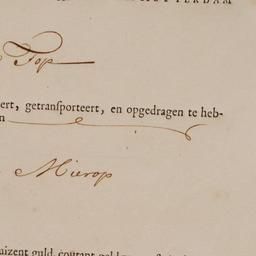 TTERDAM
Top
ert, getransporteert, en opgedragen te heb-
n
Mierop
uizent guld. courant geld